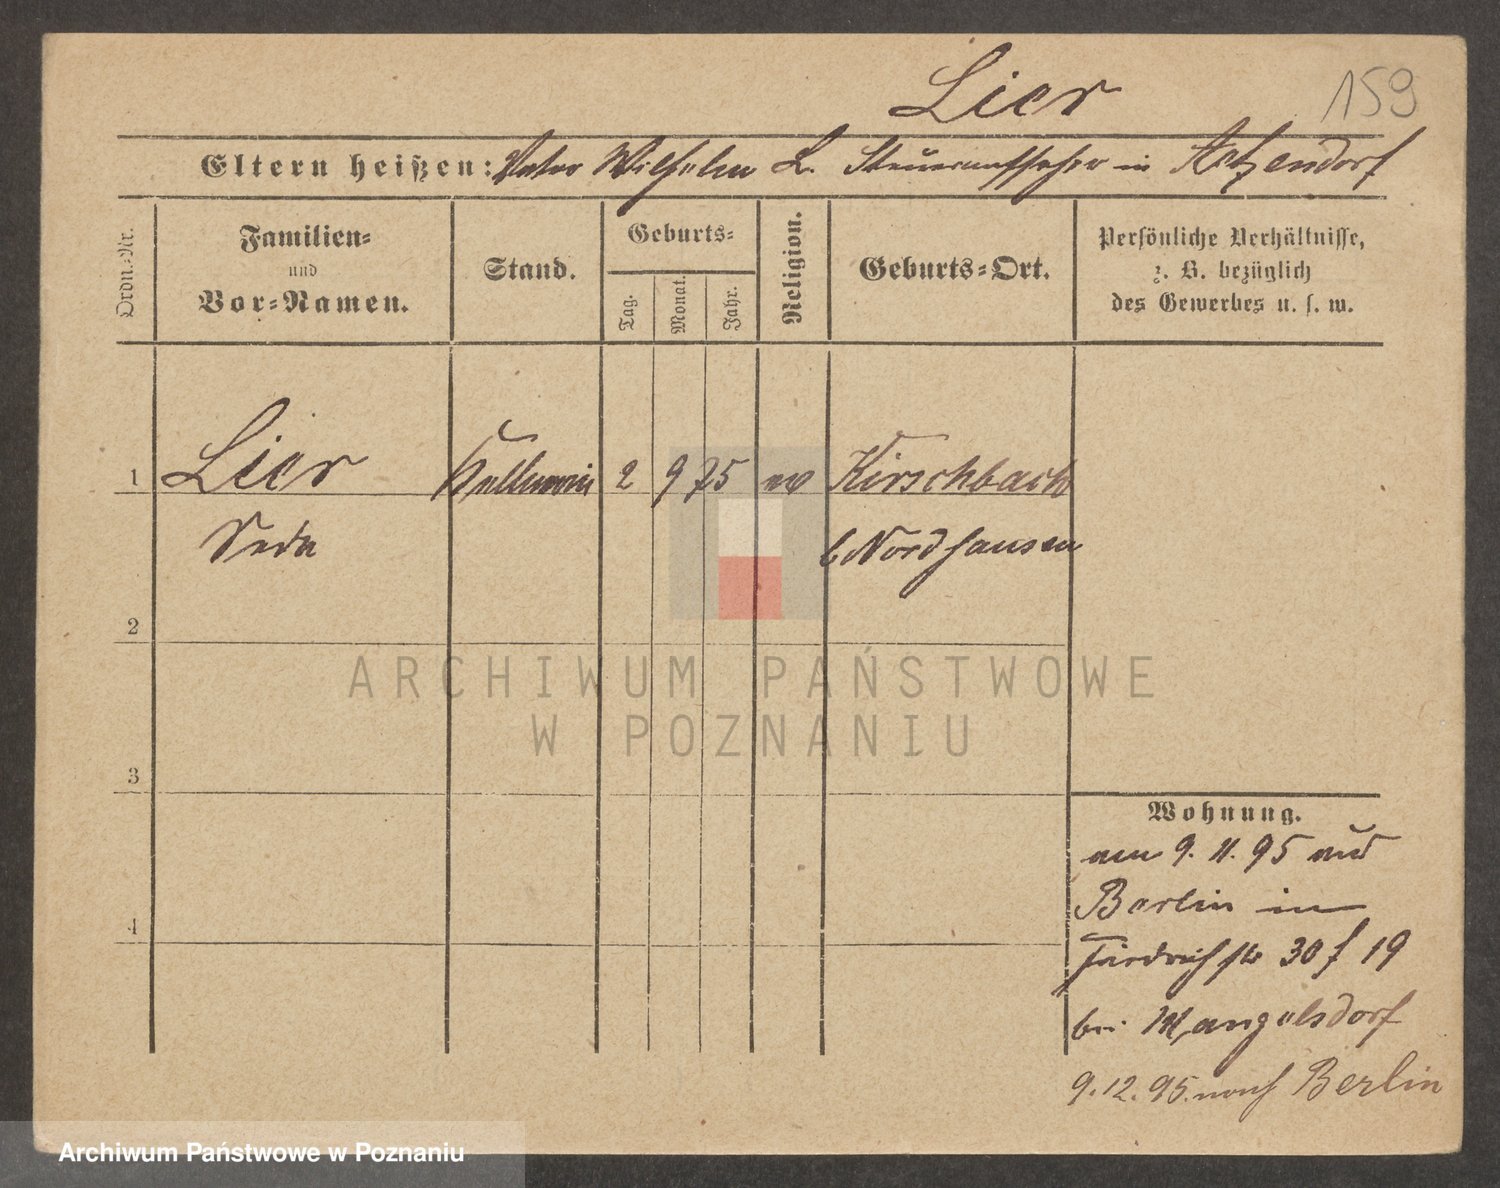 Lier
159
Eltern heißen: Vater Wilhelm L. Steueraufseher in Atzendorf
Ordn.-Nr.
Familien-
und
Vor-Namen.
Stand.
Geburts-
Tag.
Monat.
Jahr.
Religion.
Geburts-Ort.
Persönliche Verhältnisse,
z. B. bezüglich
des Gewerbes u. s. w.
1 Lier 2 9 75 ev Kirschbach
b Nordhausen
2
3
4
Wohnung.
am 9. 11. 95 aus
Berlin in
Friedrichstr 30 f 19
bei Mangelsdorf
9.12.95. nach Berlin
ARCHIWUM PAŃSTWOWE
W POZNANIU
Archiwum Państwowe w Poznaniu